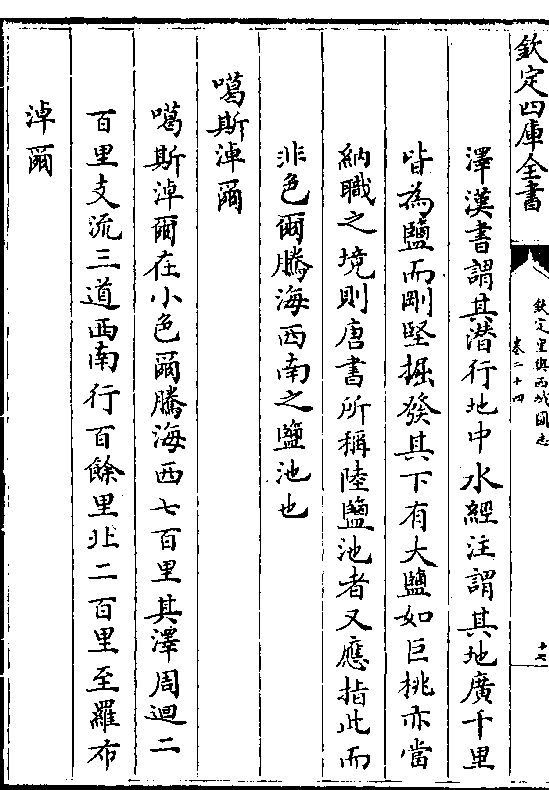 欽定四庫全書
欽定皇輿西域圖志
卷二十四
十七
澤漢書謂其潛行地中水經注謂其地廣千里
皆為鹽而剛堅掘發其下有大鹽如巨桃亦當
納職之境則唐書所稱陸鹽池者又應指此而
非色爾騰海西南之鹽池也
噶斯淖爾
噶斯淖爾在小色爾騰海西七百里其澤周迴二
百里支流三道西南行百餘里北二百里至羅布
淖爾